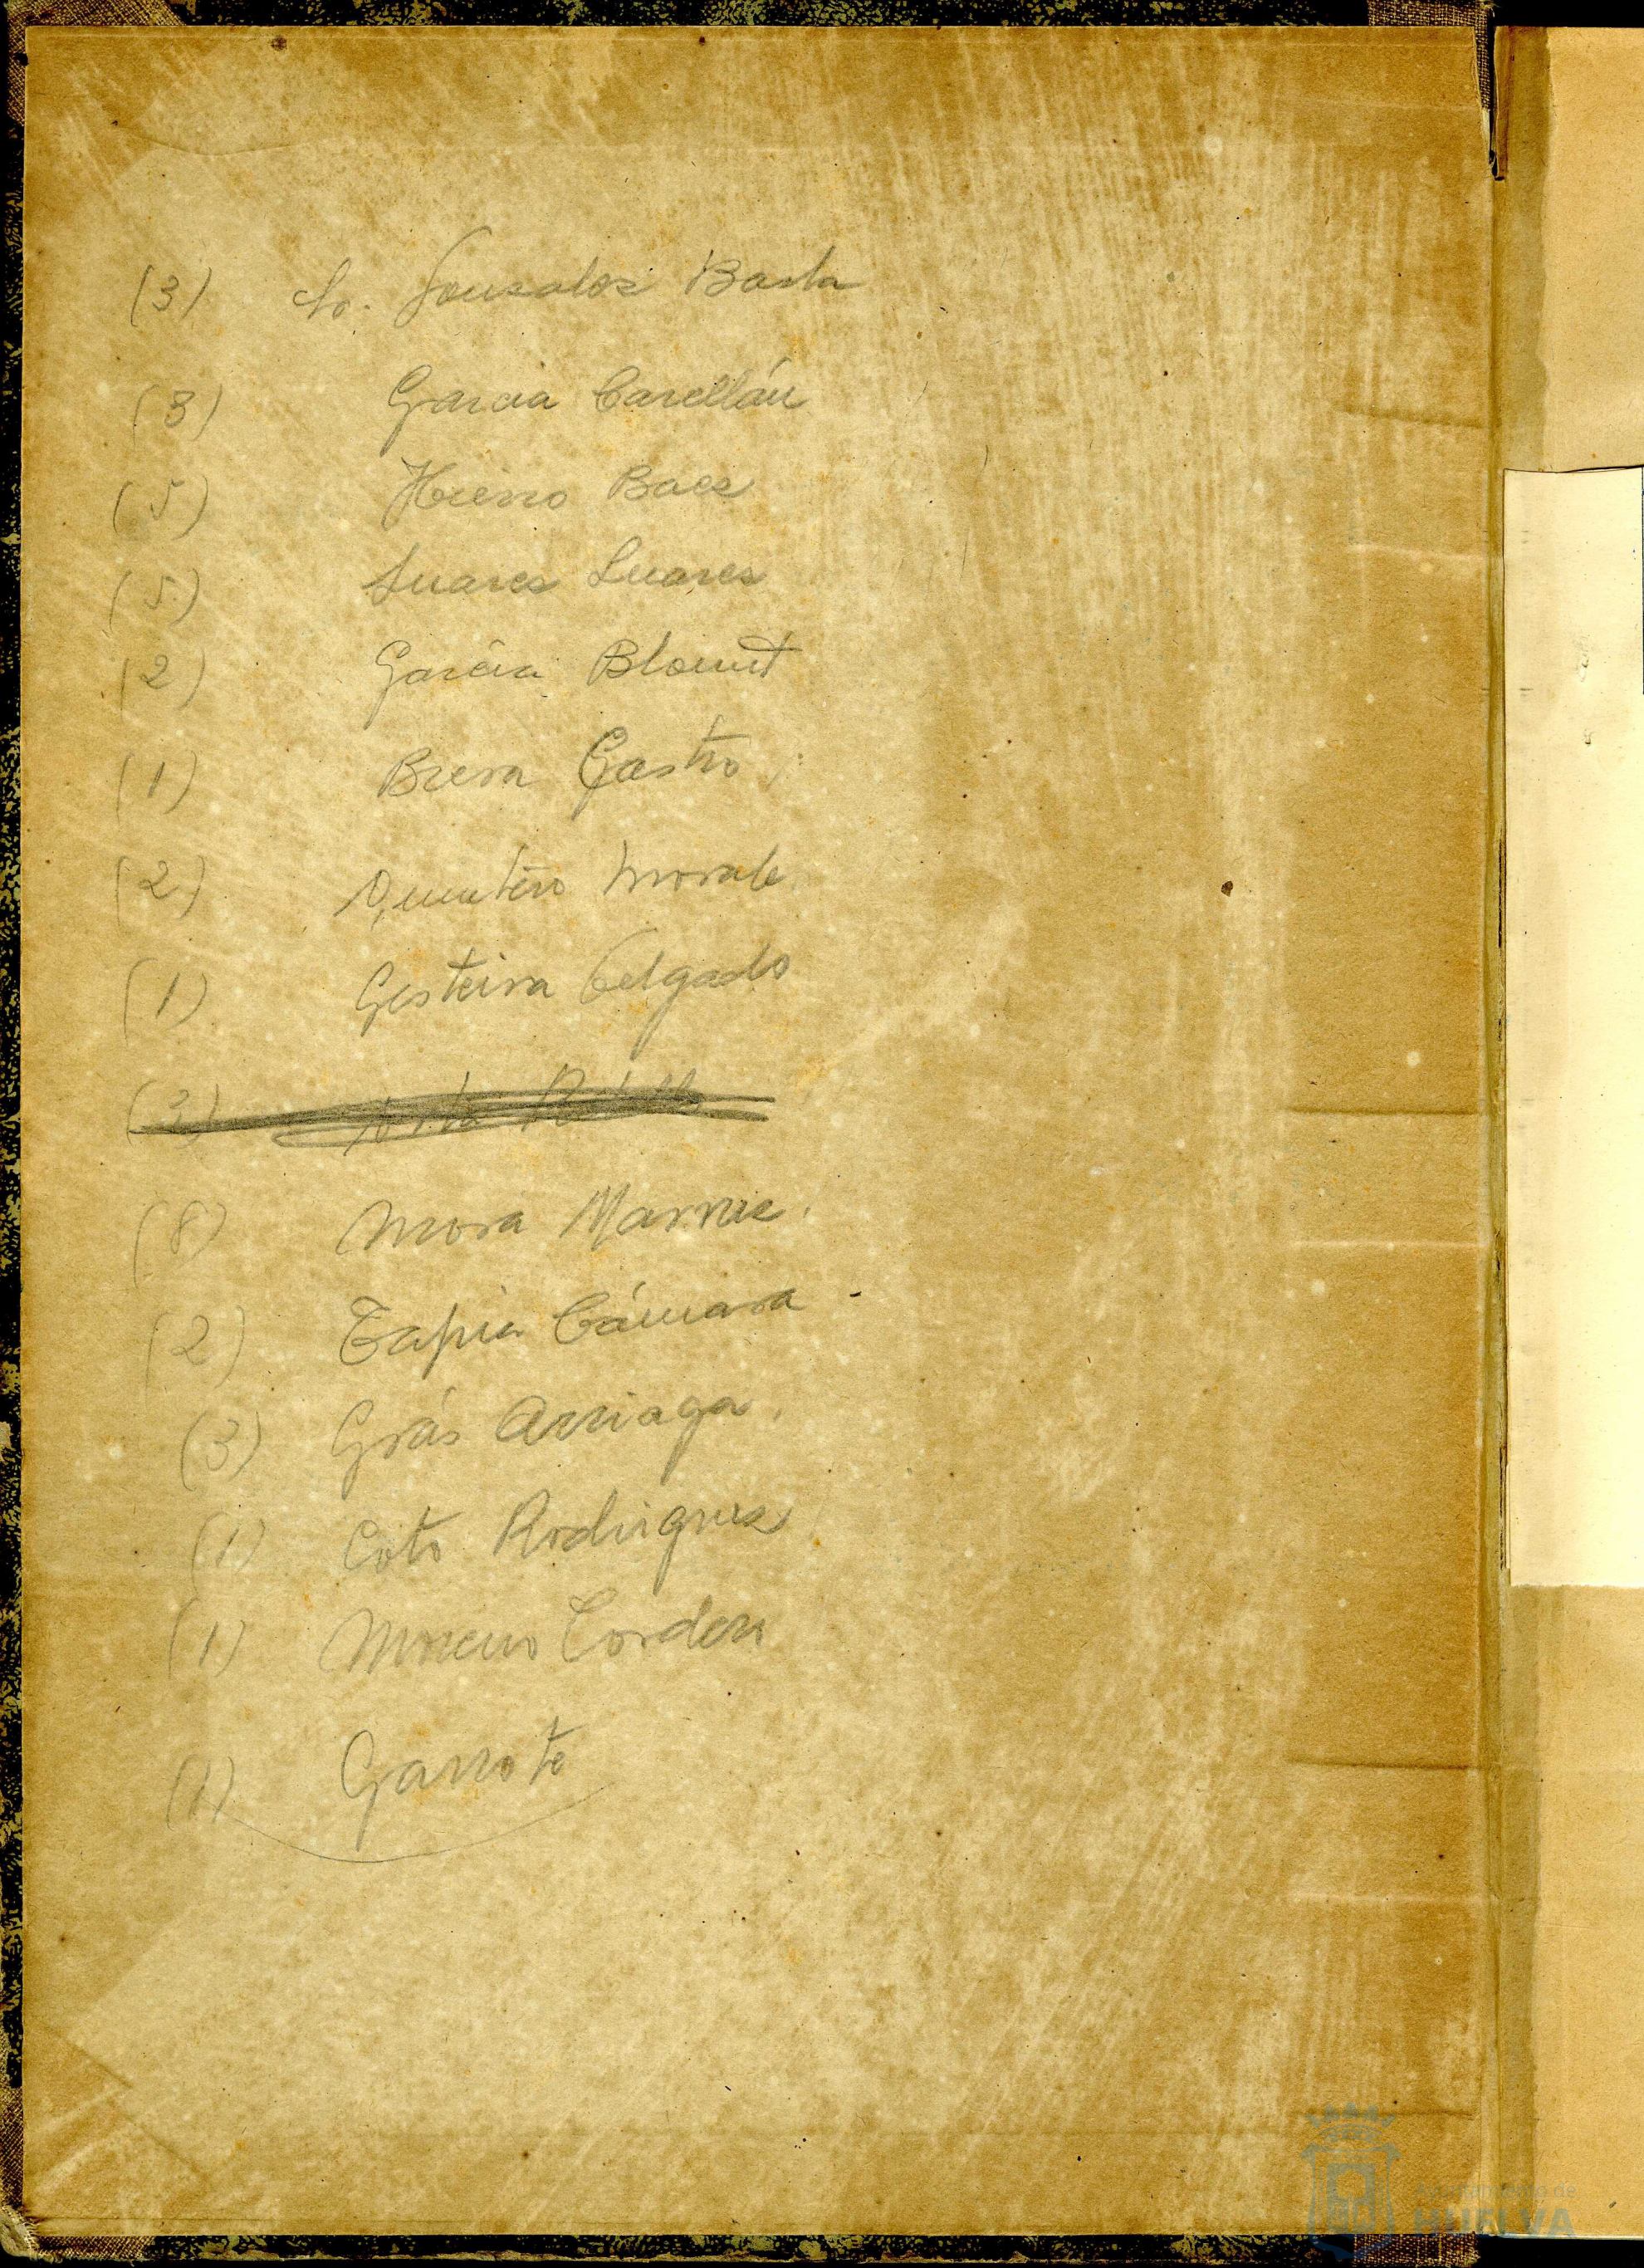 (3) Sr. Gonzalez Barba
(3) Garcia Carellán
(5) Hierro Baez
(5) Suarez Suarez
(2) García Blount
(1) Brera Castro
(2) Quintero Morale
(1) Gesteira Delgado
(3)
(8) Mora Narváez.
(2) Tapia Cámara -
(3) Grás Arriaga.
(1) Coto Rodriguez
(1) Moreno Cordero
(1) Garrote
Ayuntamiento de
HUELVA